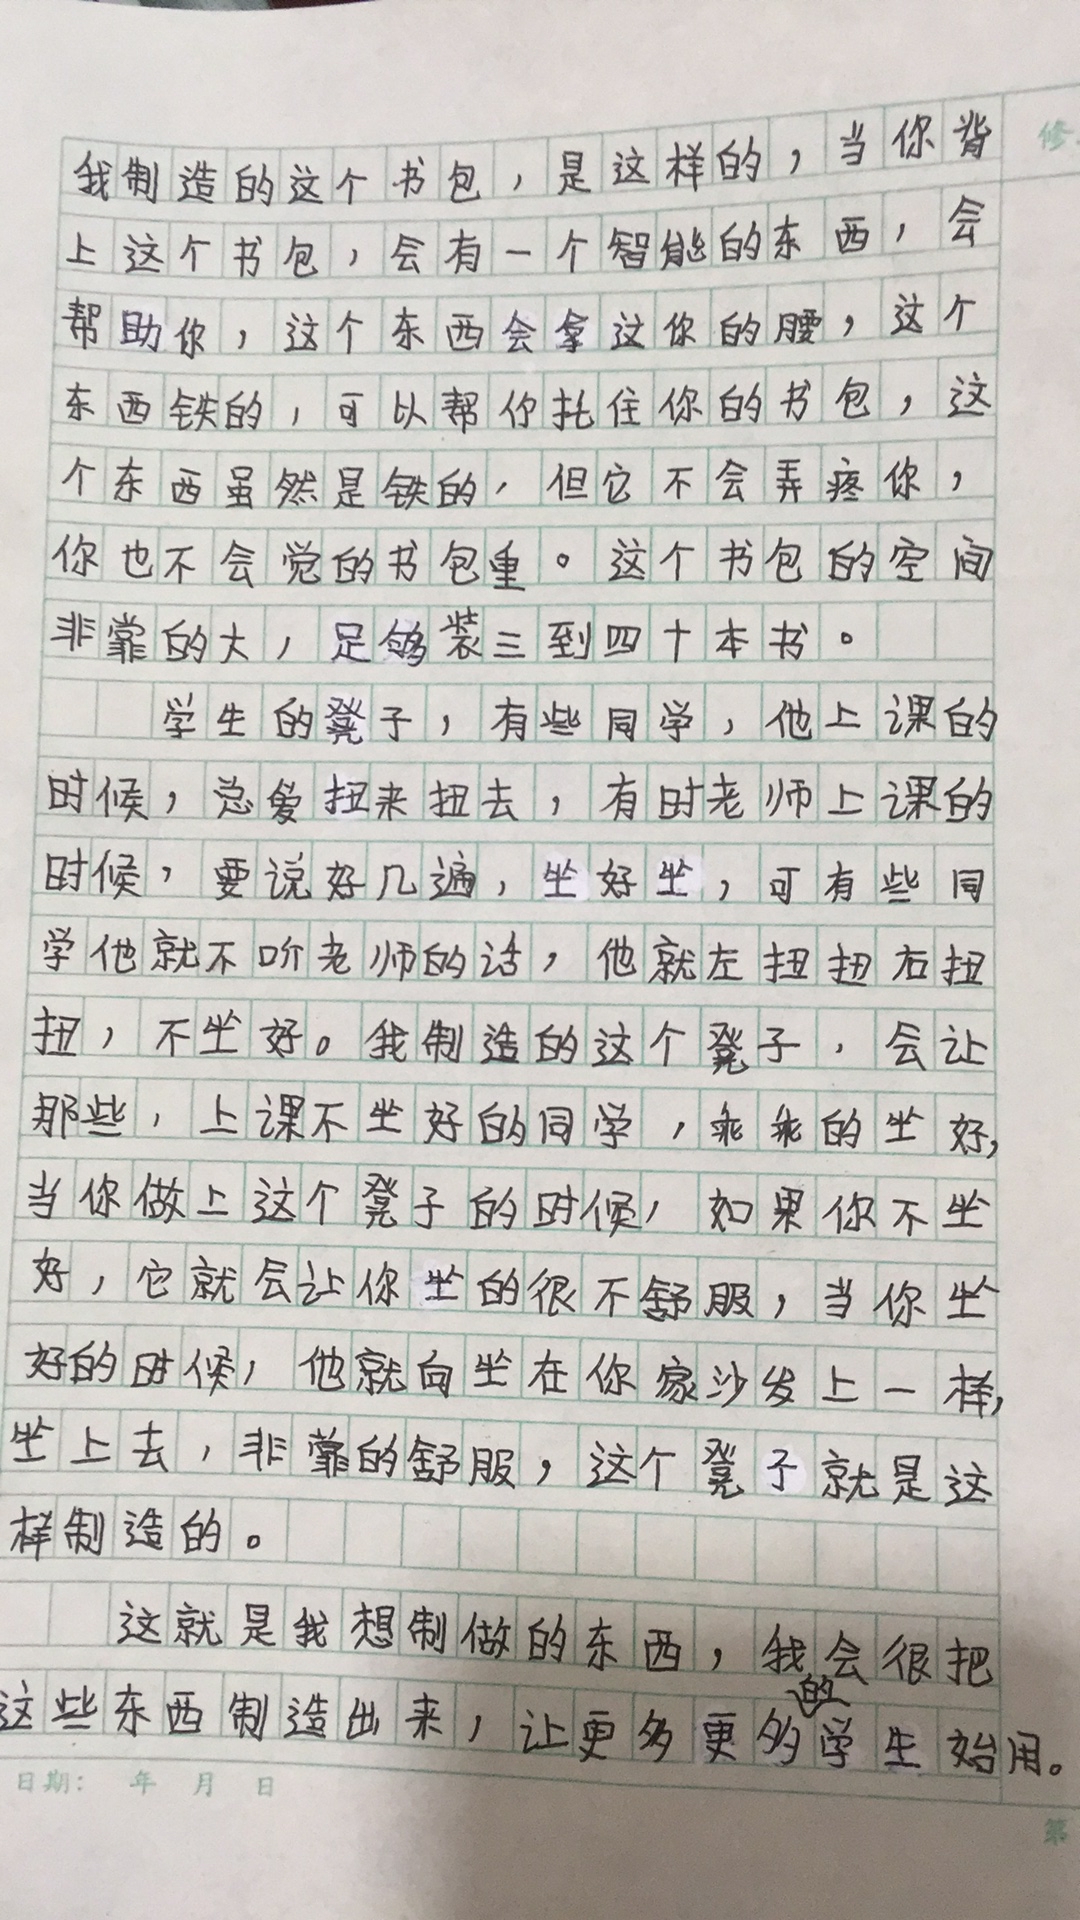 修
我制造的这个书包，是这样的，当你背
上这个书包，会有一个智能的东西，会
帮助你，这个东西会拿这你的腰，这个
东西铁的，可以帮你托住你的书包，这
个东西虽然是铁的，但它不会弄疼你，
你也不会觉的书包重。这个书包的空间
非靠的大，足够装三到四十本书。
学生的凳子，有些同学，他上课的
时候，总爱扭来扭去，有时老师上课的
时候，要说好几遍，坐好坐，可有些同
学他就不听老师的话，他就左扭扭右扭
扭，不坐好。我制造的这个凳子，会让
那些，上课不坐好的同学，乖乖的坐好，
当你做上这个凳子的时候，如果你不坐
好，它就会让你坐的很不舒服，当你坐
好的时候，他就向坐在你家沙发上一样，
坐上去，非靠的舒服，这个凳子就是这
样制造的。
这就是我想制做的东西，我会很把
这些东西制造出来，让更多更多的学生始用。
日期： 年 月 日
第